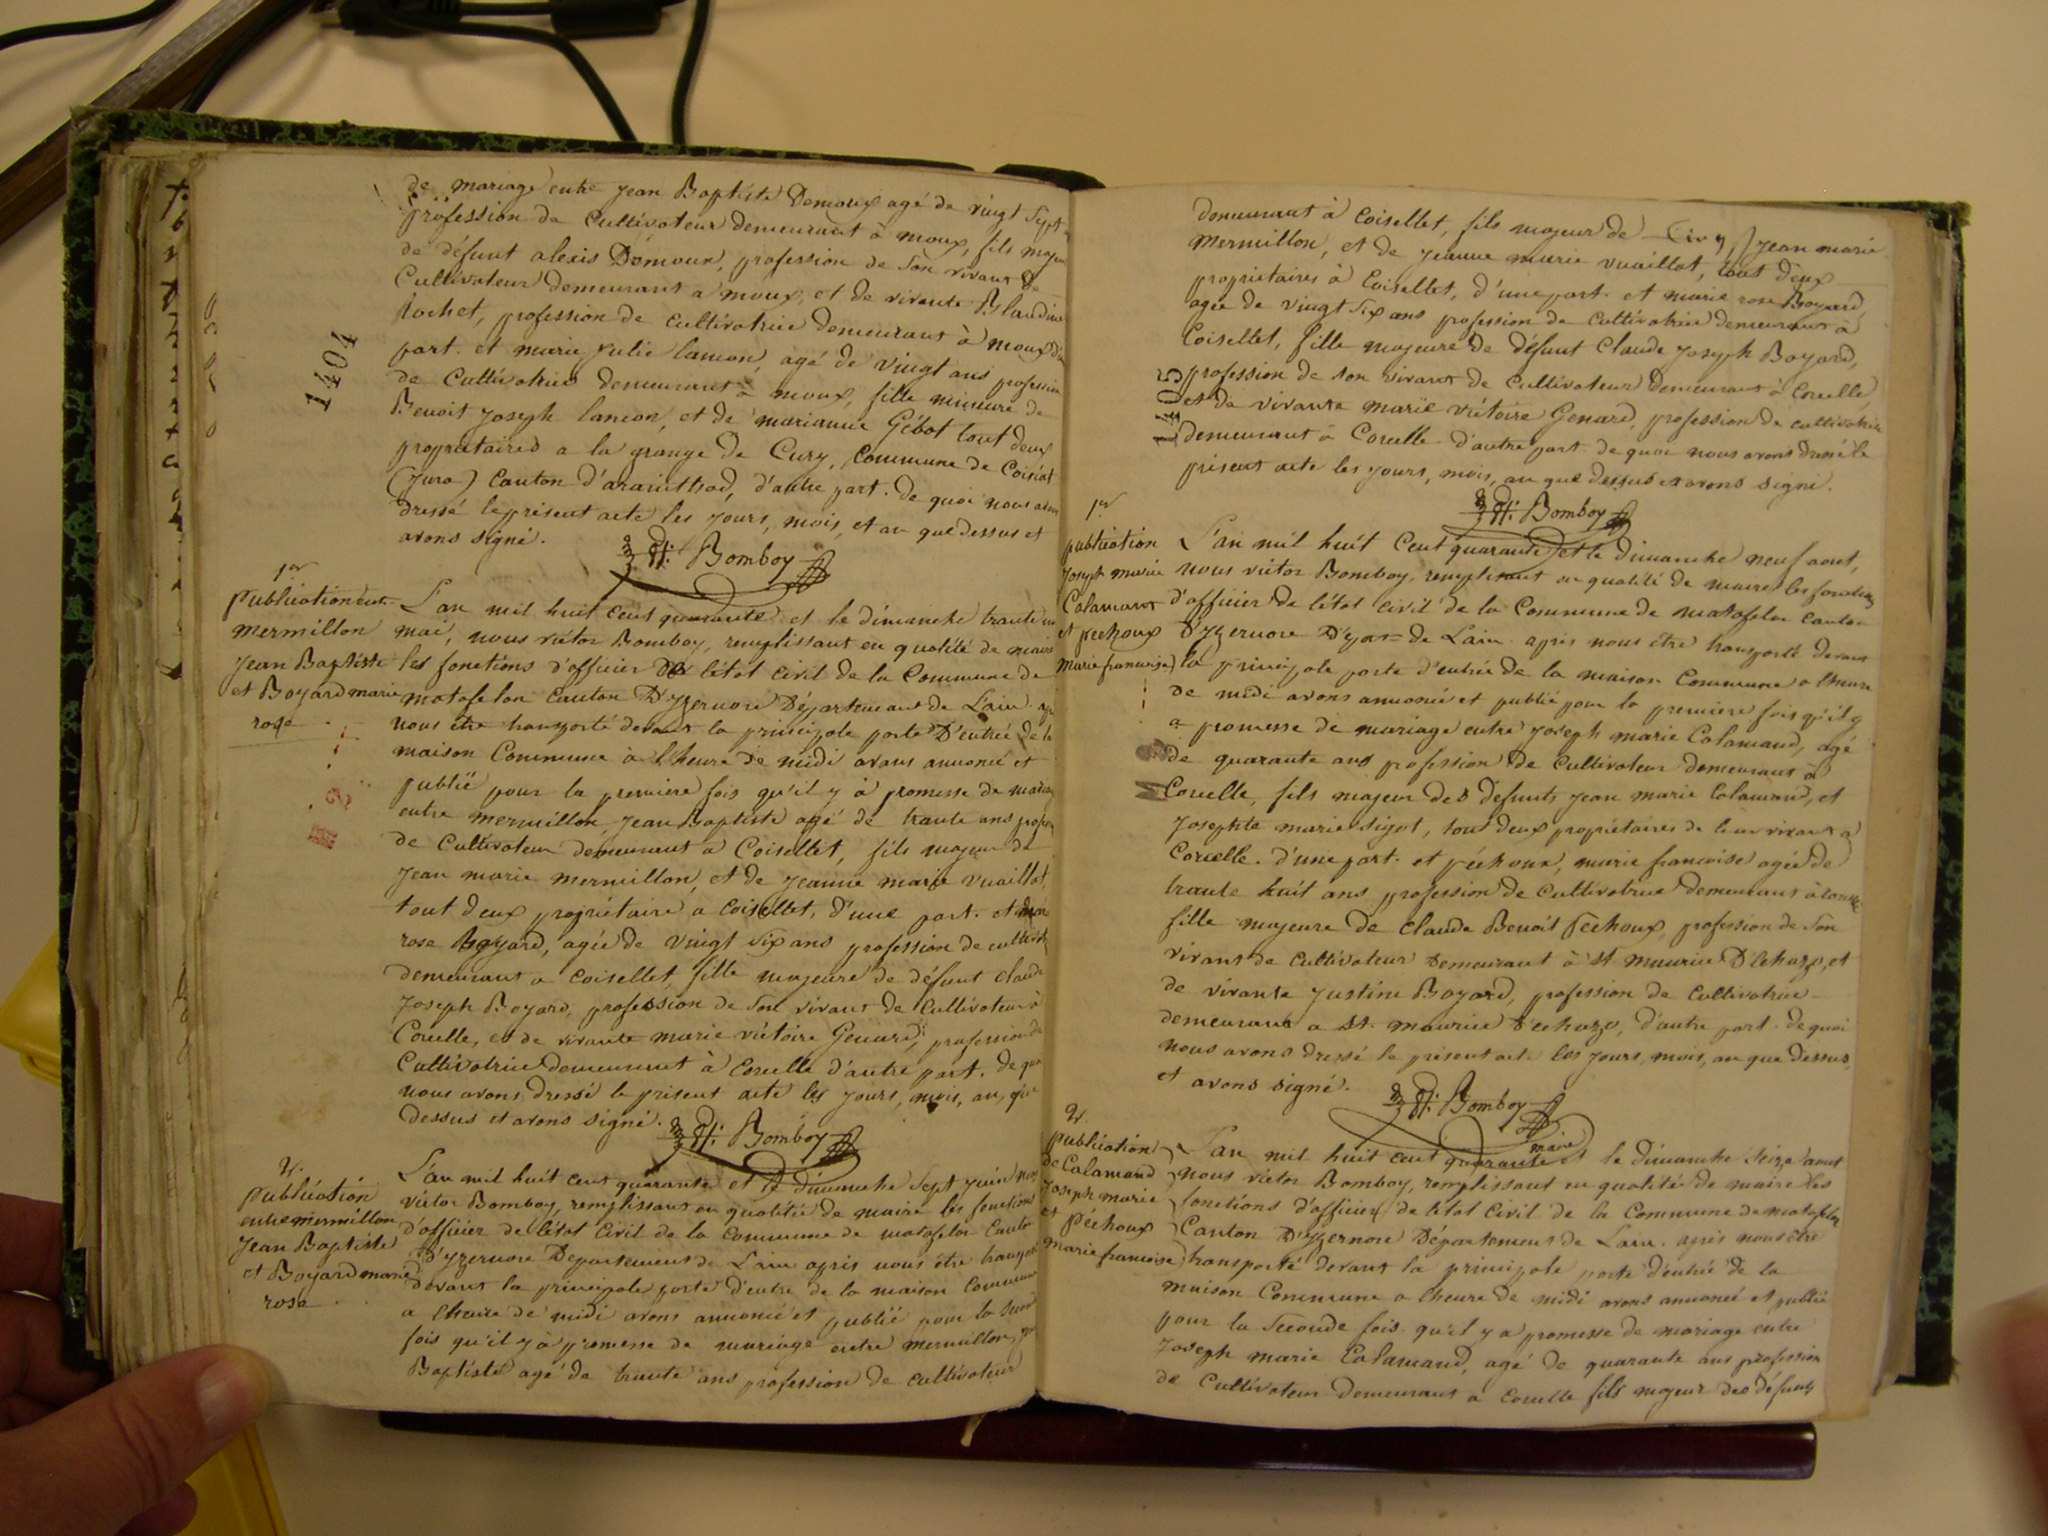 de mariage entre Jean Baptiste Demoux agé de vingt sept
profession de Cultivateur demeurant à moux, fils majeur
de défunt alexis Demoux, profession de son vivant de
Cultivateur demeurant a moux, et de vivante Blandine
Rochet, profession de cultivatrice demeurant à moux d'une
part. et marie Julie lancon, agé de vingt ans profession
de Cultivatrice demeurant à moux, fille mineure de
Benoit Joseph lancon, et de marianne Gébot tout deux
propriétaires a la grange de Cury, Commune de Coisiat
(Jura) Canton d'arainthod, d'autre part. de quoi nous avons
dressé le présent acte les jours, mois, et an que dessus et
avons signé.
Bomboy
1404
1er
publication entre
mermillon
Jean Baptiste
et Boyard marie
rose
L'an mil huit cent quarante et le dimanche trante un
mai, nous victor Bomboy, remplissant en qualité de maire
les fonctions d'officier de l'état civil de la Commune de
matafelon Canton D'yzernore Département de Lain. après
nous être transporté devant la principale porte D'entrée de la
maison Commune à l'heure de midi avons annoncé et
publié pour la première fois qu'il y à promesse de mariage
entre mermillon Jean Baptiste agé de trante ans profession
de Cultivateur demeurant a Coisellet, fils majeur de
Jean marie mermillon, et de Jeanne marie vuaillat,
tout deux propriétaire a Coisellet, d'une part. et marie
rose Boyard, agée de vingt six ans profession de cultivatrice
demeurant a Coisellet, fille majeure de défunt claude
Joseph Boyard, profession de son vivant de Cultivateur à
Corcelle, et de vivante marie victoire Genard, profession de
Cultivatrice demeurant à Corcelle d'autre part. de quoi
nous avons dressé le présent acte les jours, mois, an, que
dessus et avons signé.
Bomboy
2e
publication
entre mermillon
Jean Baptiste
et Boyard marie
rose
L'an mil huit cent quarante et le dimanche sept juin nous
victor Bomboy, remplissant en qualitée de maire les fonctions
d'officier de l'état Civil de la Commune de matafelon Canton
d'yzernore Département de Lain après nous être transporté
devant la principale porte d'entre de la maison Commune
a l'heure de midi avons annoncé et publié pour la seconde
fois qu'il y à promesse de mariage entre mermillon, Jean
Baptiste agé de trante ans profession de cultivateur
demeurant à Coisellet, fils majeur de Jean marie
mermillon, et de Jeanne marie vuaillat, tout deux
propriétaires à Coisellet, d'une part. et marie rose Boyard,
agée de vingt six ans profession de Cultivatrice demeurant à
Coisellet, fille majeure de défunt Claude Joseph Boyard,
profession de son vivant de Cultivateur demeurant à Corcelle,
et de vivante marie victoire Genard, profession de cultivatrice
demeurant à Corcelle d'autre part. de quoi nous avons dressé le
présent acte les jours, mois, an que dessus et avons signé.
Bomboy
1405
1er
publication
Joseph marie
Calamand
et péchoux
marie francoise
L'an mil huit Cent quarante et le dimanche neuf aout,
nous victor Bomboy, remplissant en qualité de maire les fonctions
d'officier de l'état civil de la Commune de matafelon Canton
D'yzernore Dépt de Lain. après nous être transporté devant
la principale porte d'entrée de la maison Commune a l'heure
de midi avons annoncé et publié pour la première fois qu'il y
a promesse de mariage entre Joseph marie Calamand, agé
de quarante ans profession de Cultivateur demeurant à
Corcelle, fils majeur des défunts Jean marie Calamand, et
Josephte marie sigot, tous deux propriétaires de leur vivant à
Corcelle. d'une part. et péchoux, marie francoise agée de
trante huit ans profession de Cultivatrice demeurant à Corcelle
fille majeure de Claude Benoit Péchoux, profession de son
vivant de Cultivateur demeurant à st maurice D'echazo, et
de vivante Justine Boyard, profession de Cultivatrice
demeurant a St. maurice d'echazo, d'autre part. de quoi
nous avons dressé le présent acte les jours, mois, an que dessus,
et avons signé.
Bomboy
maire
2e
publication
de Calamand
Joseph marie
et
Péchoux
marie francoise
L'an mil huit cent quarante et le dimanche seize aout
nous victor Bomboy, remplissant en qualité de maire les
fonctions d'officier de l'état Civil de la Commune de matafelon
Canton D'yzernore Département de Lain. après nous être
transporté devant la principale porte d'entrée de la
maison Commune a l'heure de midi avons annoncé et publié
pour la seconde fois. qu'il y a promesse de mariage entre
Joseph marie Calamand, agé de quarante ans profession
de Cultivateur demeurant a Corcelle fils majeur des défunts